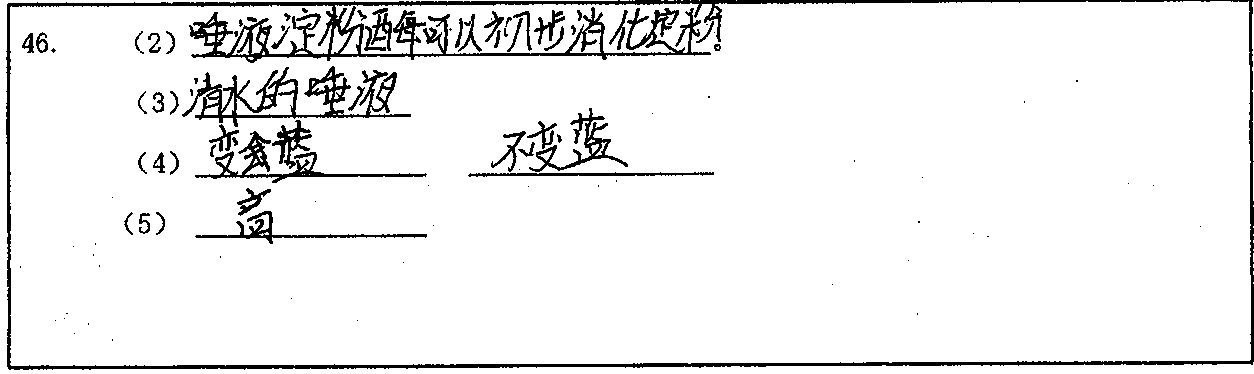 46. (2) 唾液淀粉酶可以初步消化淀粉。
(3) 清水的唾液
(4) 变会蓝 不变蓝
(5) 高